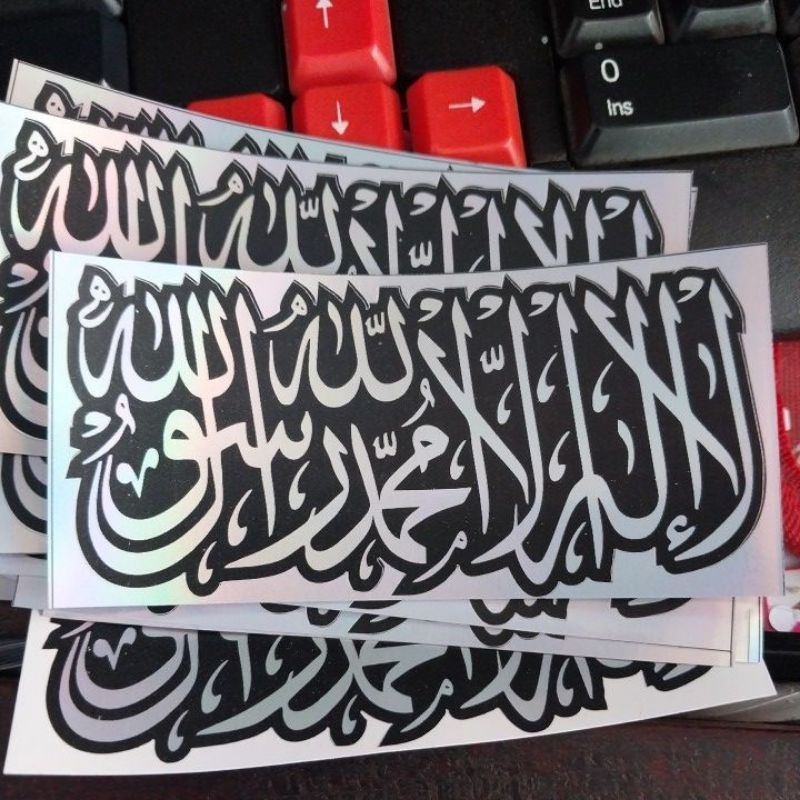 End
0
Ins
↑
↓
→
لا إله إلا الله محمد رسول الله